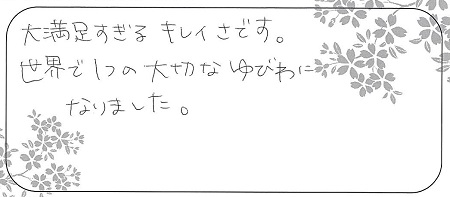 大満足すぎる キレイさです。
世界で1つの大切なゆびわに
なりました。